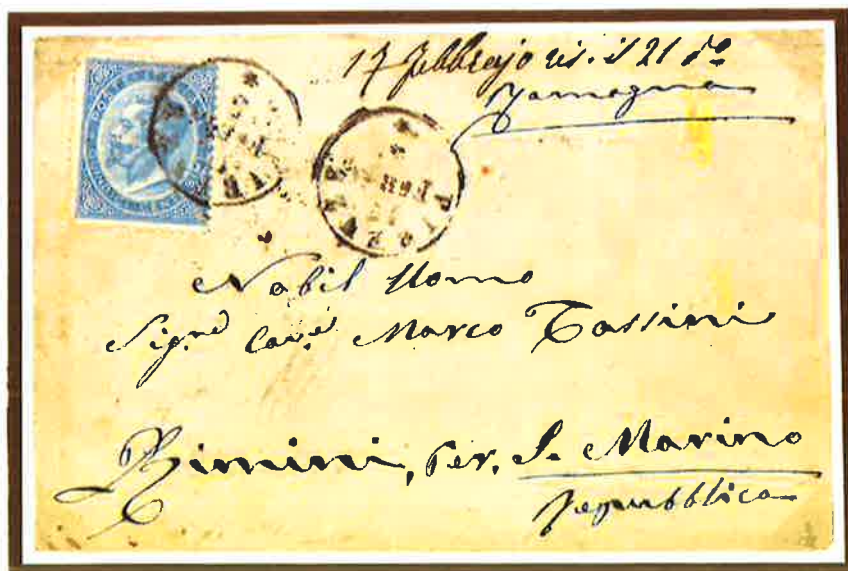 17 febbrajo ris. il 21 do
Romagna
POSTE
PIOEVE
FEB
Nobil Uomo
Sig.re Cav.e Marco Tassini
Rimini, per, S. Marino
Repubblica